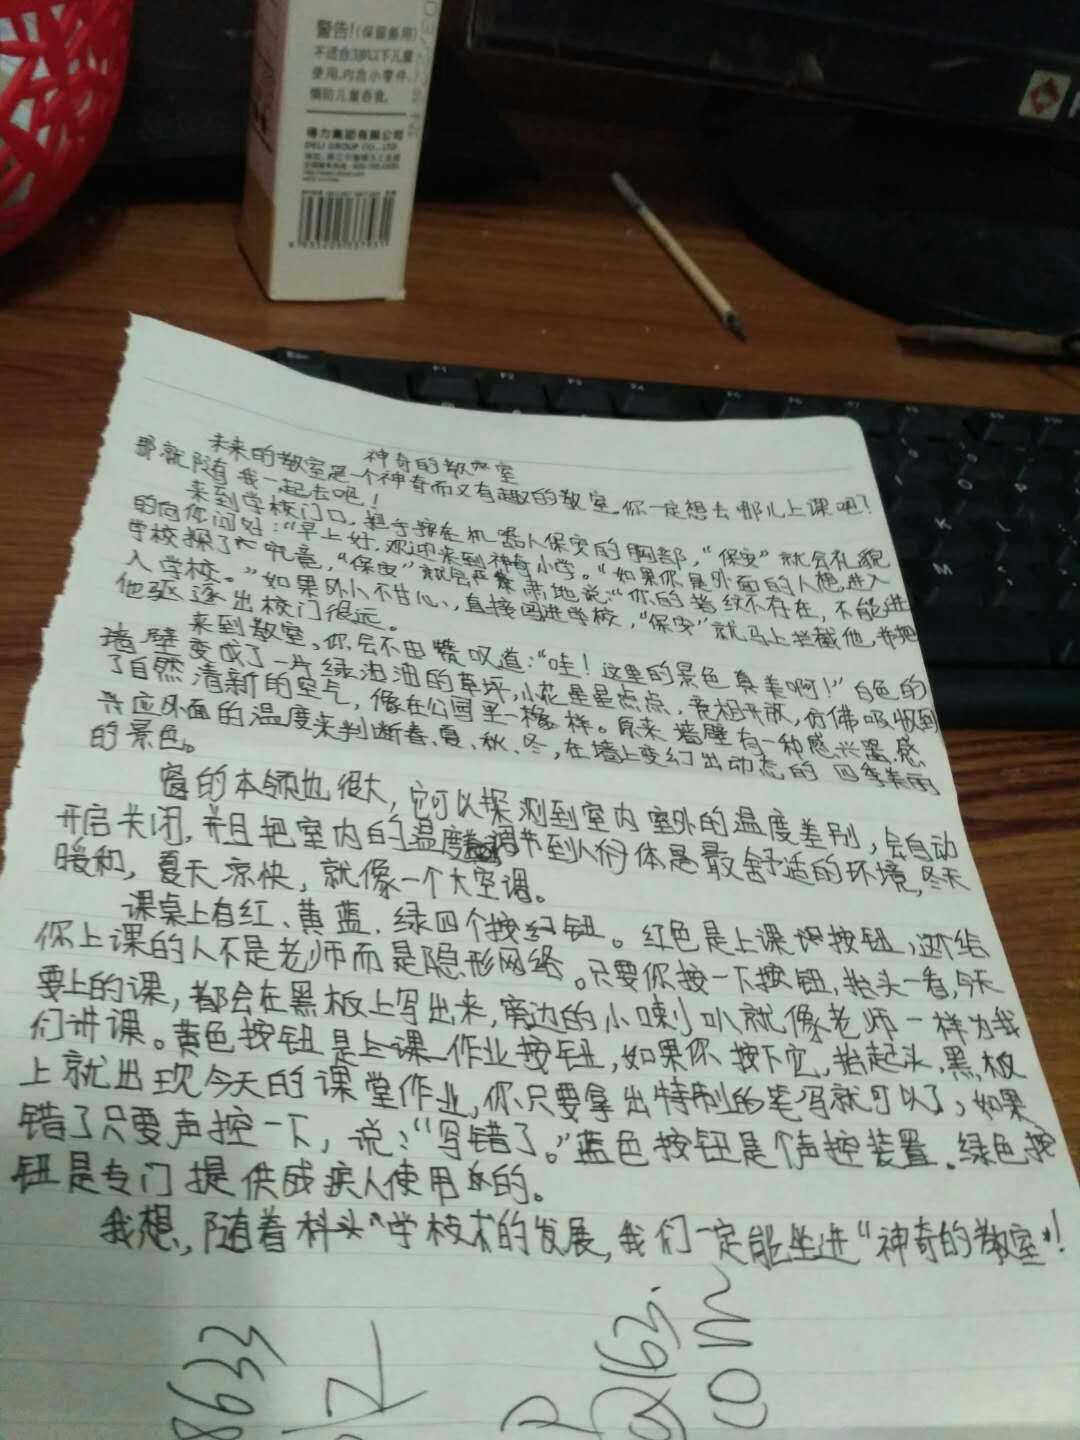 警告!(保留备用)
不适合3岁以下儿童
使用,内含小零件,
慎防儿童吞食。
得力集团有限公司
DELI GROUP CO., LTD.
神奇的教室
未来的教室是一个神奇而又有趣的教室,你一定想去那儿上课吧?
那就随着我一起去吧!
来到学校门口,把手按在机器人保安的胸部,“保安”就会礼貌
的向你问好:“早上好,欢迎来到神奇小学。”如果你是外面的人想进入
学校探个究竟,“保安”就会严肃地说:“你的指纹不存在,不能进
入学校。”如果外人不甘心,直接闯进学校,“保安”就马上拦截他,并把
他驱逐出校门很远。
来到教室,你会不由赞叹道:“哇!这里的景色真美啊!”白色的
墙壁变成了一片绿油油的草坪,小花星星点点,竞相开放,仿佛吸收到
了自然清新的空气,像在公园里一样。原来墙壁有一种感兴器,感
应外面的温度来判断春、夏、秋、冬,在墙上变幻出动态的四季美丽
的景色。
窗的本领也很大,它可以探测到室内室外的温度差别,会自动
开启关闭,并且把室内的温度调节到人们身体最舒适的环境,冬天
暖和,夏天凉快,就像一个大空调。
课桌上有红、黄蓝、绿四个按钮。红色是上课按钮,这个给
你上课的人不是老师而是隐形网络。只要你按一下按钮,抬头一看,今天
要上的课,都会在黑板上写出来,旁边的小喇叭就像老师一样为我
们讲课。黄色按钮是上课作业按钮,如果你按下它,抬起头,黑板
上就出现今天的课堂作业,你只要拿出特制的笔写就可以了,如果
错了只要声控一下,说:“写错了。”蓝色按钮是个声控装置。绿色按
钮是专门提供残疾人使用的。
我想,随着科学技术的发展,我们一定能坐进“神奇的教室”!
8633
@163.
com